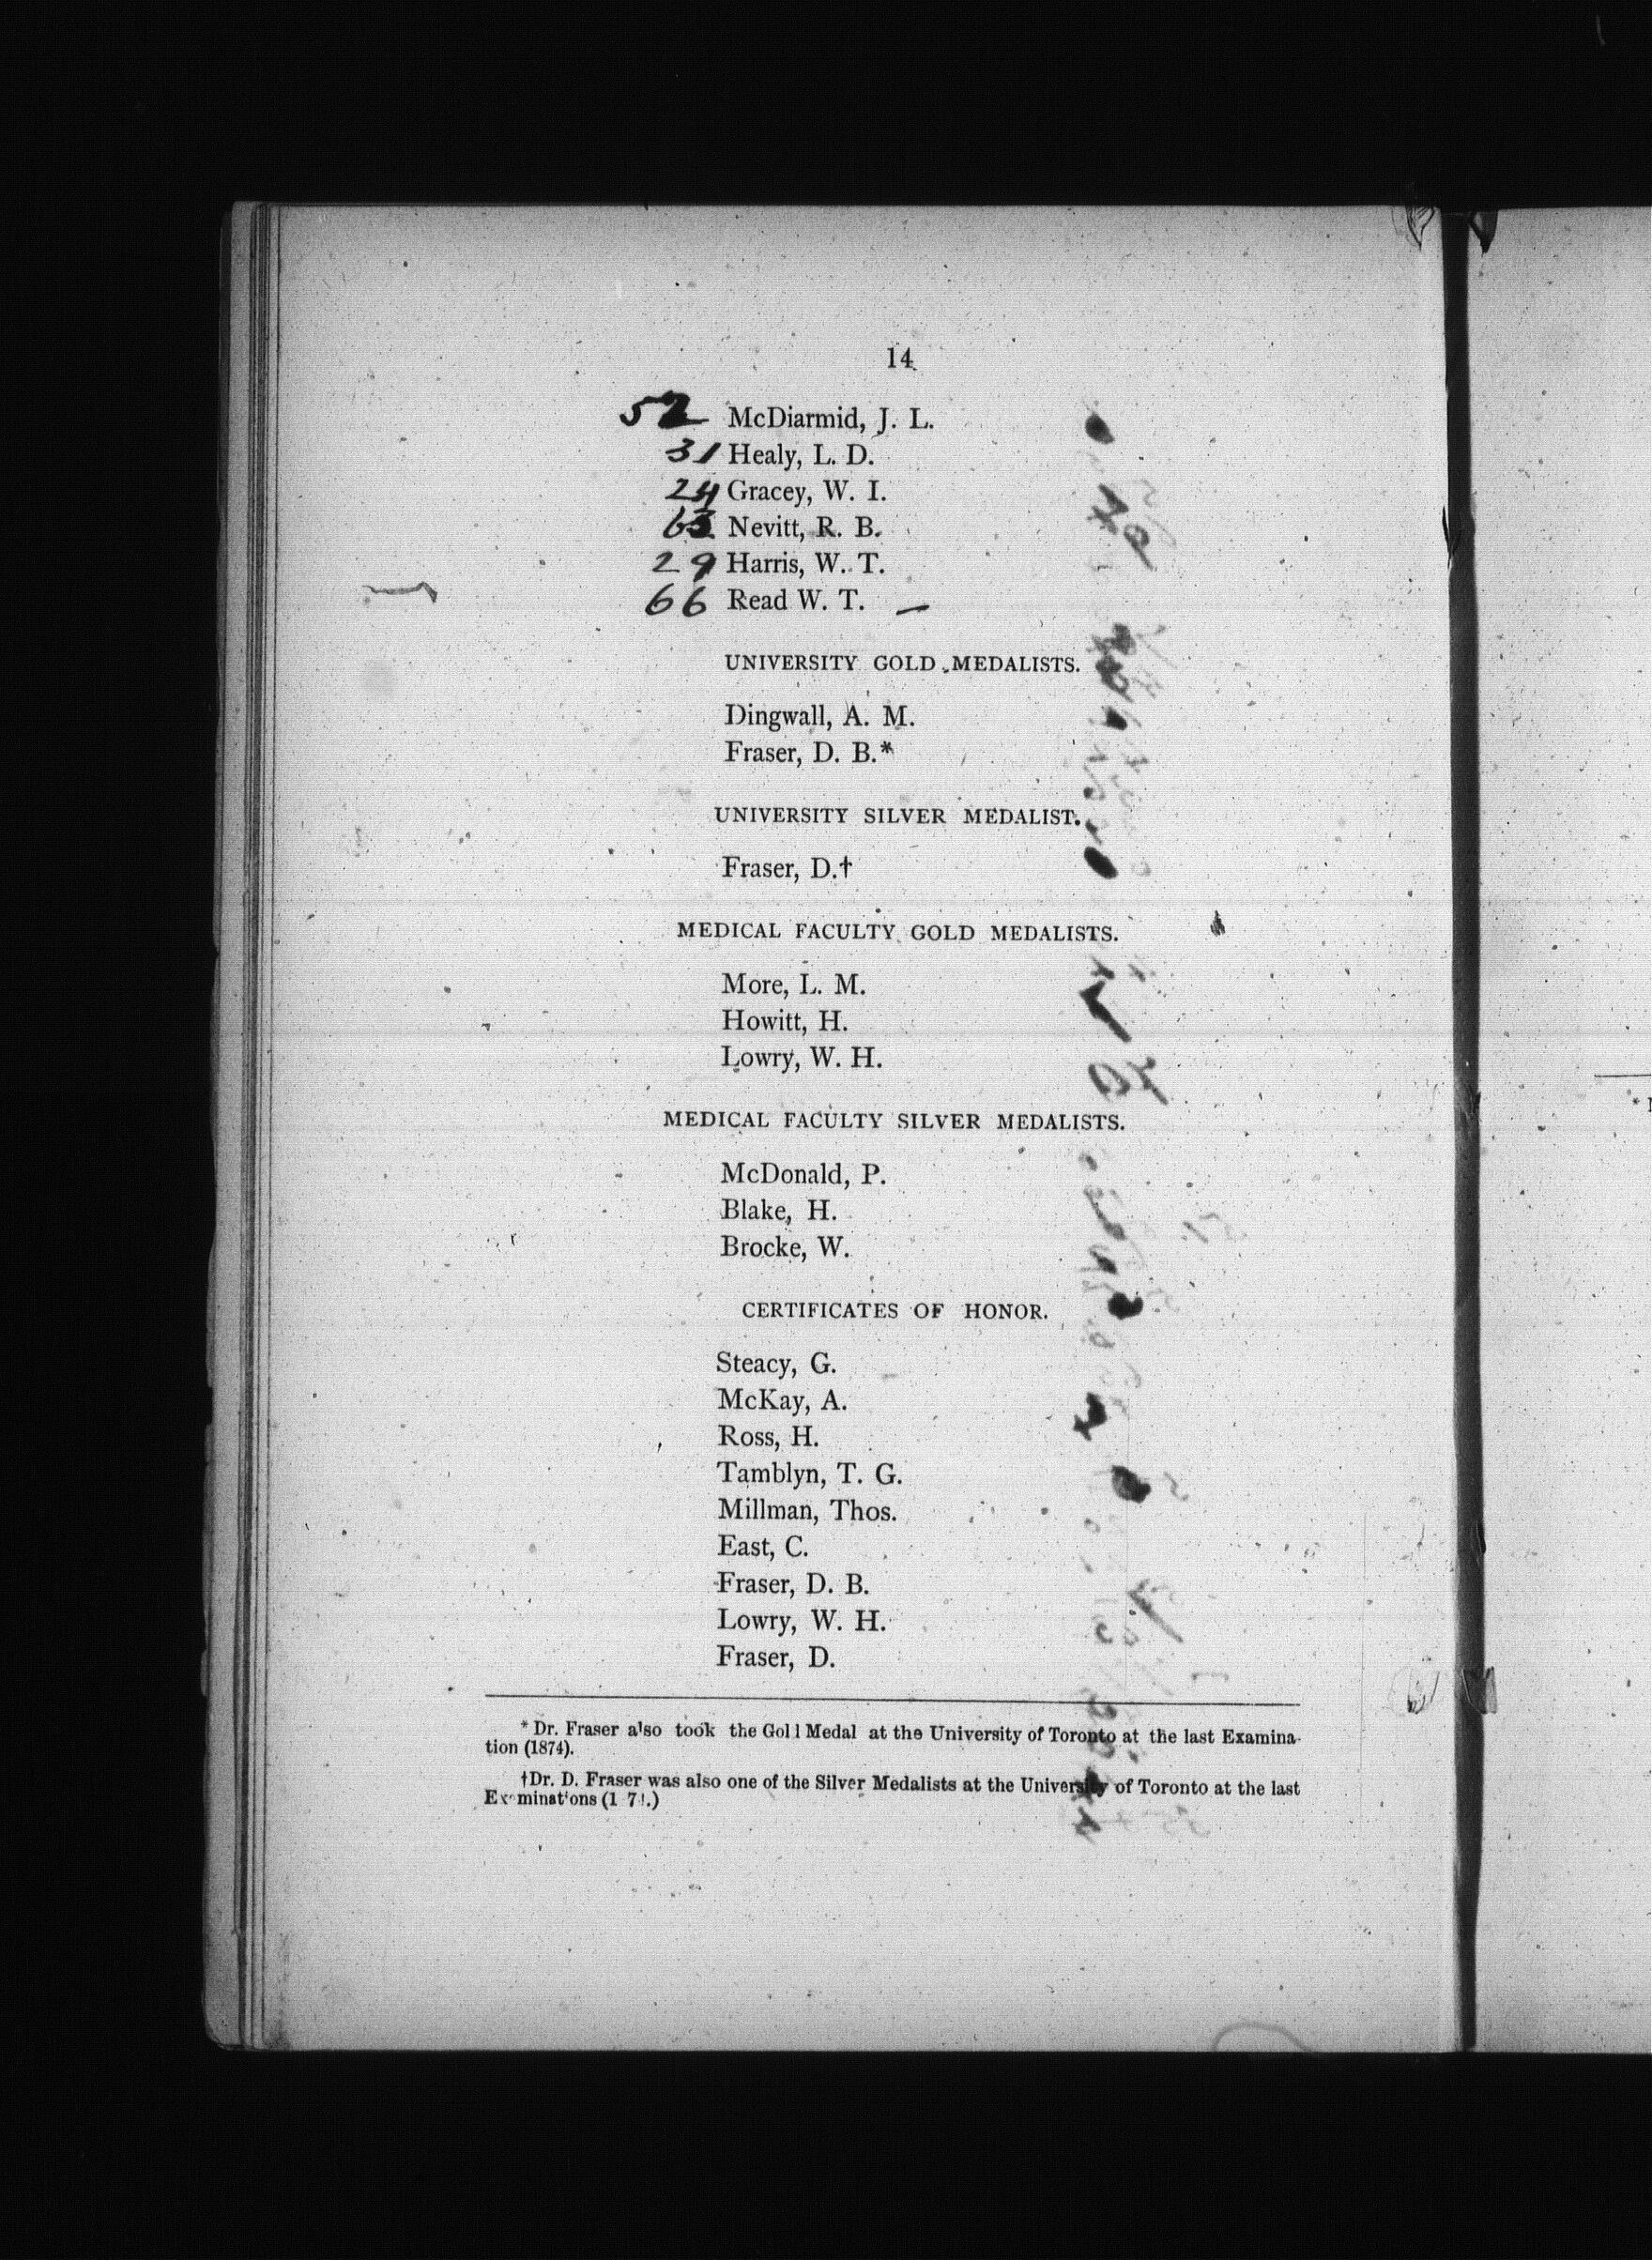 14
52 McDiarmid, J. L.
31 Healy, L. D.
24 Gracey, W. I.
63 Nevitt, R. B.
29 Harris, W. T.
66 Read W. T. —
UNIVERSITY GOLD MEDALISTS.
Dingwall, A. M.
Fraser, D. B.*
UNIVERSITY SILVER MEDALIST.
Fraser, D.†
MEDICAL FACULTY GOLD MEDALISTS.
More, L. M.
Howitt, H.
Lowry, W. H.
MEDICAL FACULTY SILVER MEDALISTS.
McDonald, P.
Blake, H.
Brocke, W.
CERTIFICATES OF HONOR.
Steacy, G.
McKay, A.
Ross, H.
Tamblyn, T. G.
Millman, Thos.
East, C.
Fraser, D. B.
Lowry, W. H.
Fraser, D.
* Dr. Fraser also took the Gol l Medal at the University of Toronto at the last Examina-
tion (1874).
†Dr. D. Fraser was also one of the Silver Medalists at the University of Toronto at the last
Ex minations (1 7 .)